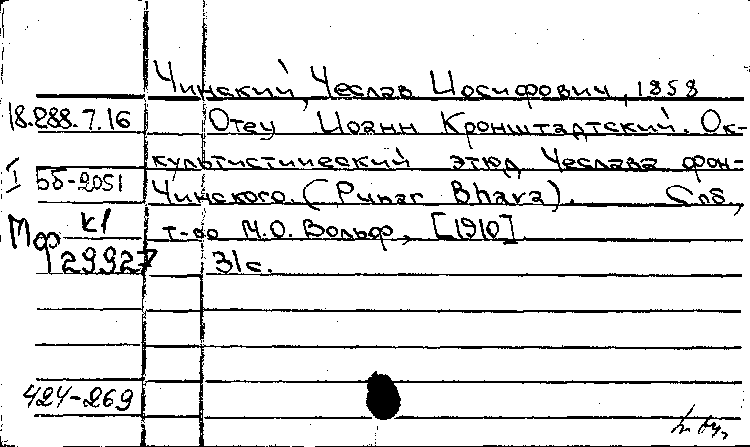 Чинский, Чеслав Иосифович, 1858
18.288.7.16 Отец Иоанн Кронштадтский. Ок-
культистический этюд Чеслава фон-
I бб-2051 Чинского. (Punar Bhava). Спб.,
Мф К1 т-во М.О. Вольф, [1910]
129927 31с.
424-269